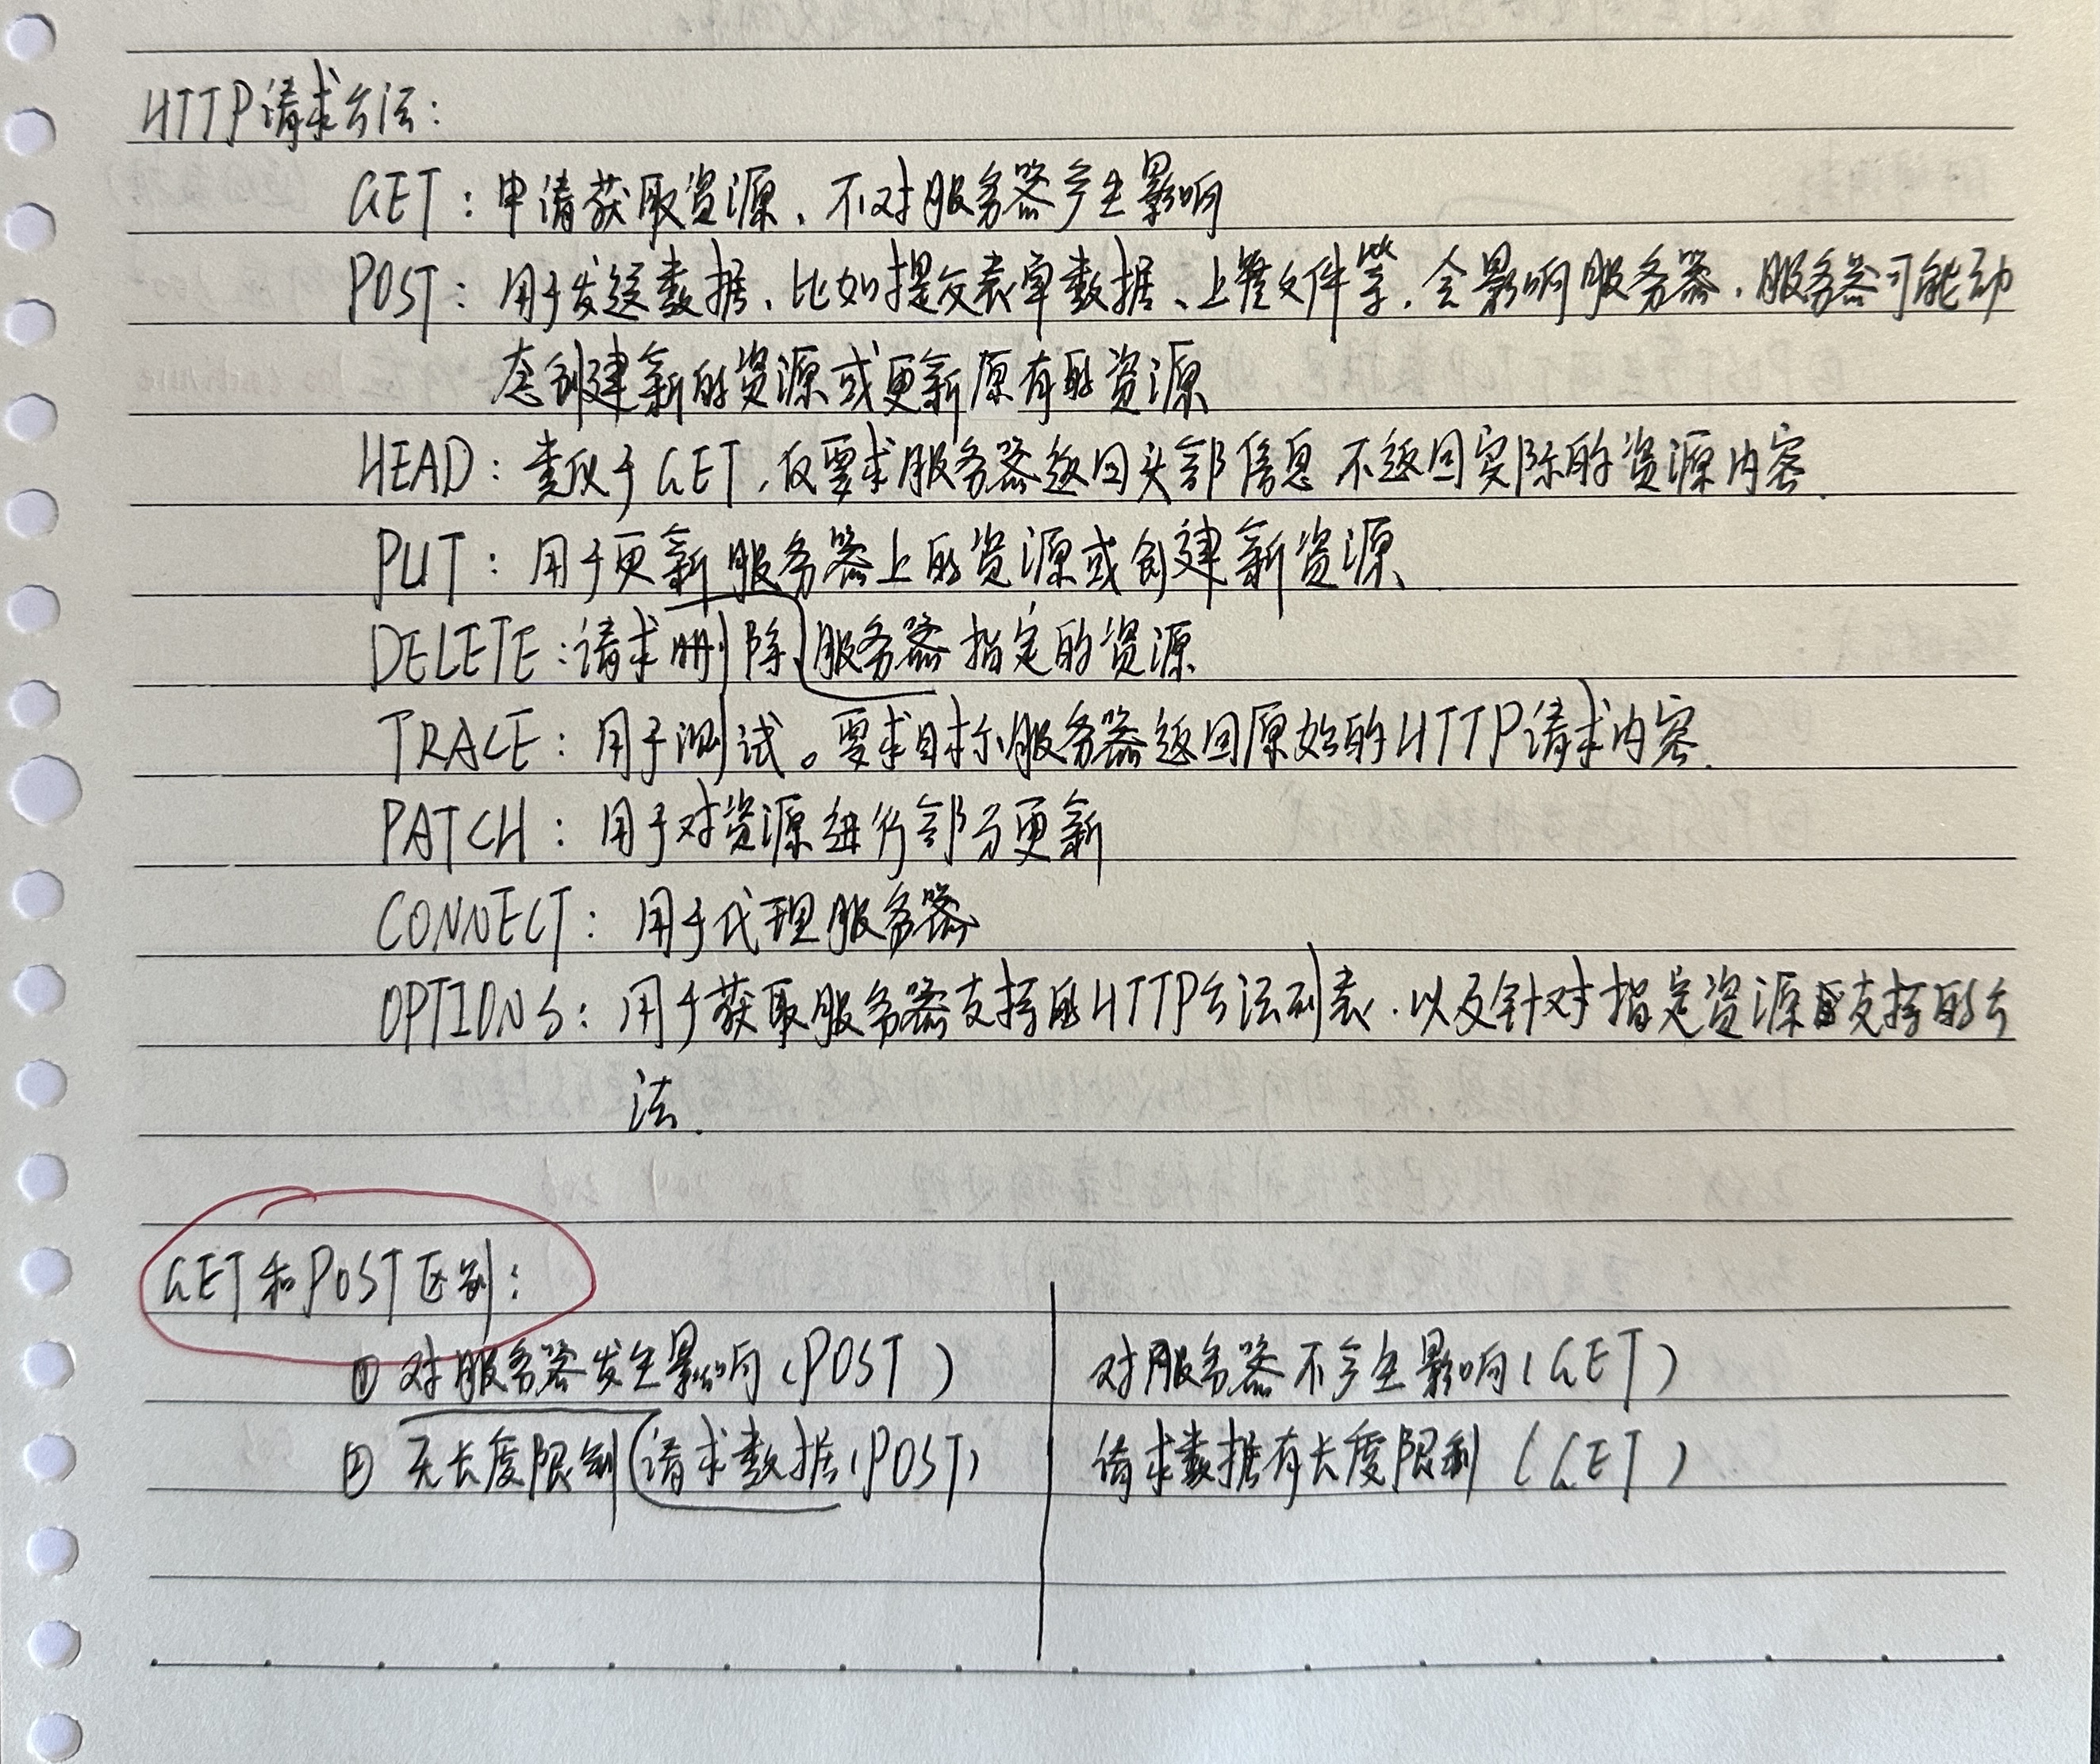 HTTP请求方法：
GET：申请获取资源、不对服务器产生影响
POST：用于发送数据、比如提交表单数据、上传文件等，会影响服务器，服务器可能动
态创建新的资源或更新原有的资源
HEAD：类似于GET，仅要求服务器返回头部信息 不返回实际的资源内容.
PUT：用于更新服务器上的资源或创建新资源、
DELETE：请求删除服务器指定的资源
TRACE：用于测试。要求目标服务器返回原始的HTTP请求内容.
PATCH：用于对资源进行部分更新
CONNECT：用于代理服务器
OPTIONS：用于获取服务器支持的HTTP方法列表，以及针对指定资源支持的方
法.
GET和POST区别：
① 对服务器发生影响（POST） 对服务器不产生影响（GET）
② 无长度限制请求数据（POST） 请求数据有长度限制（GET）